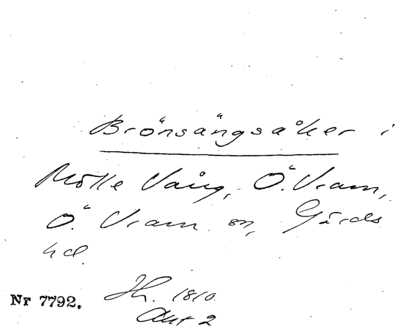 Brönsängsåker i
Mölle Vång, Ö. Vram,
Ö. Vram sn, Gärds
hd.
Nr 7792. Jh. 1810.
Akt 2